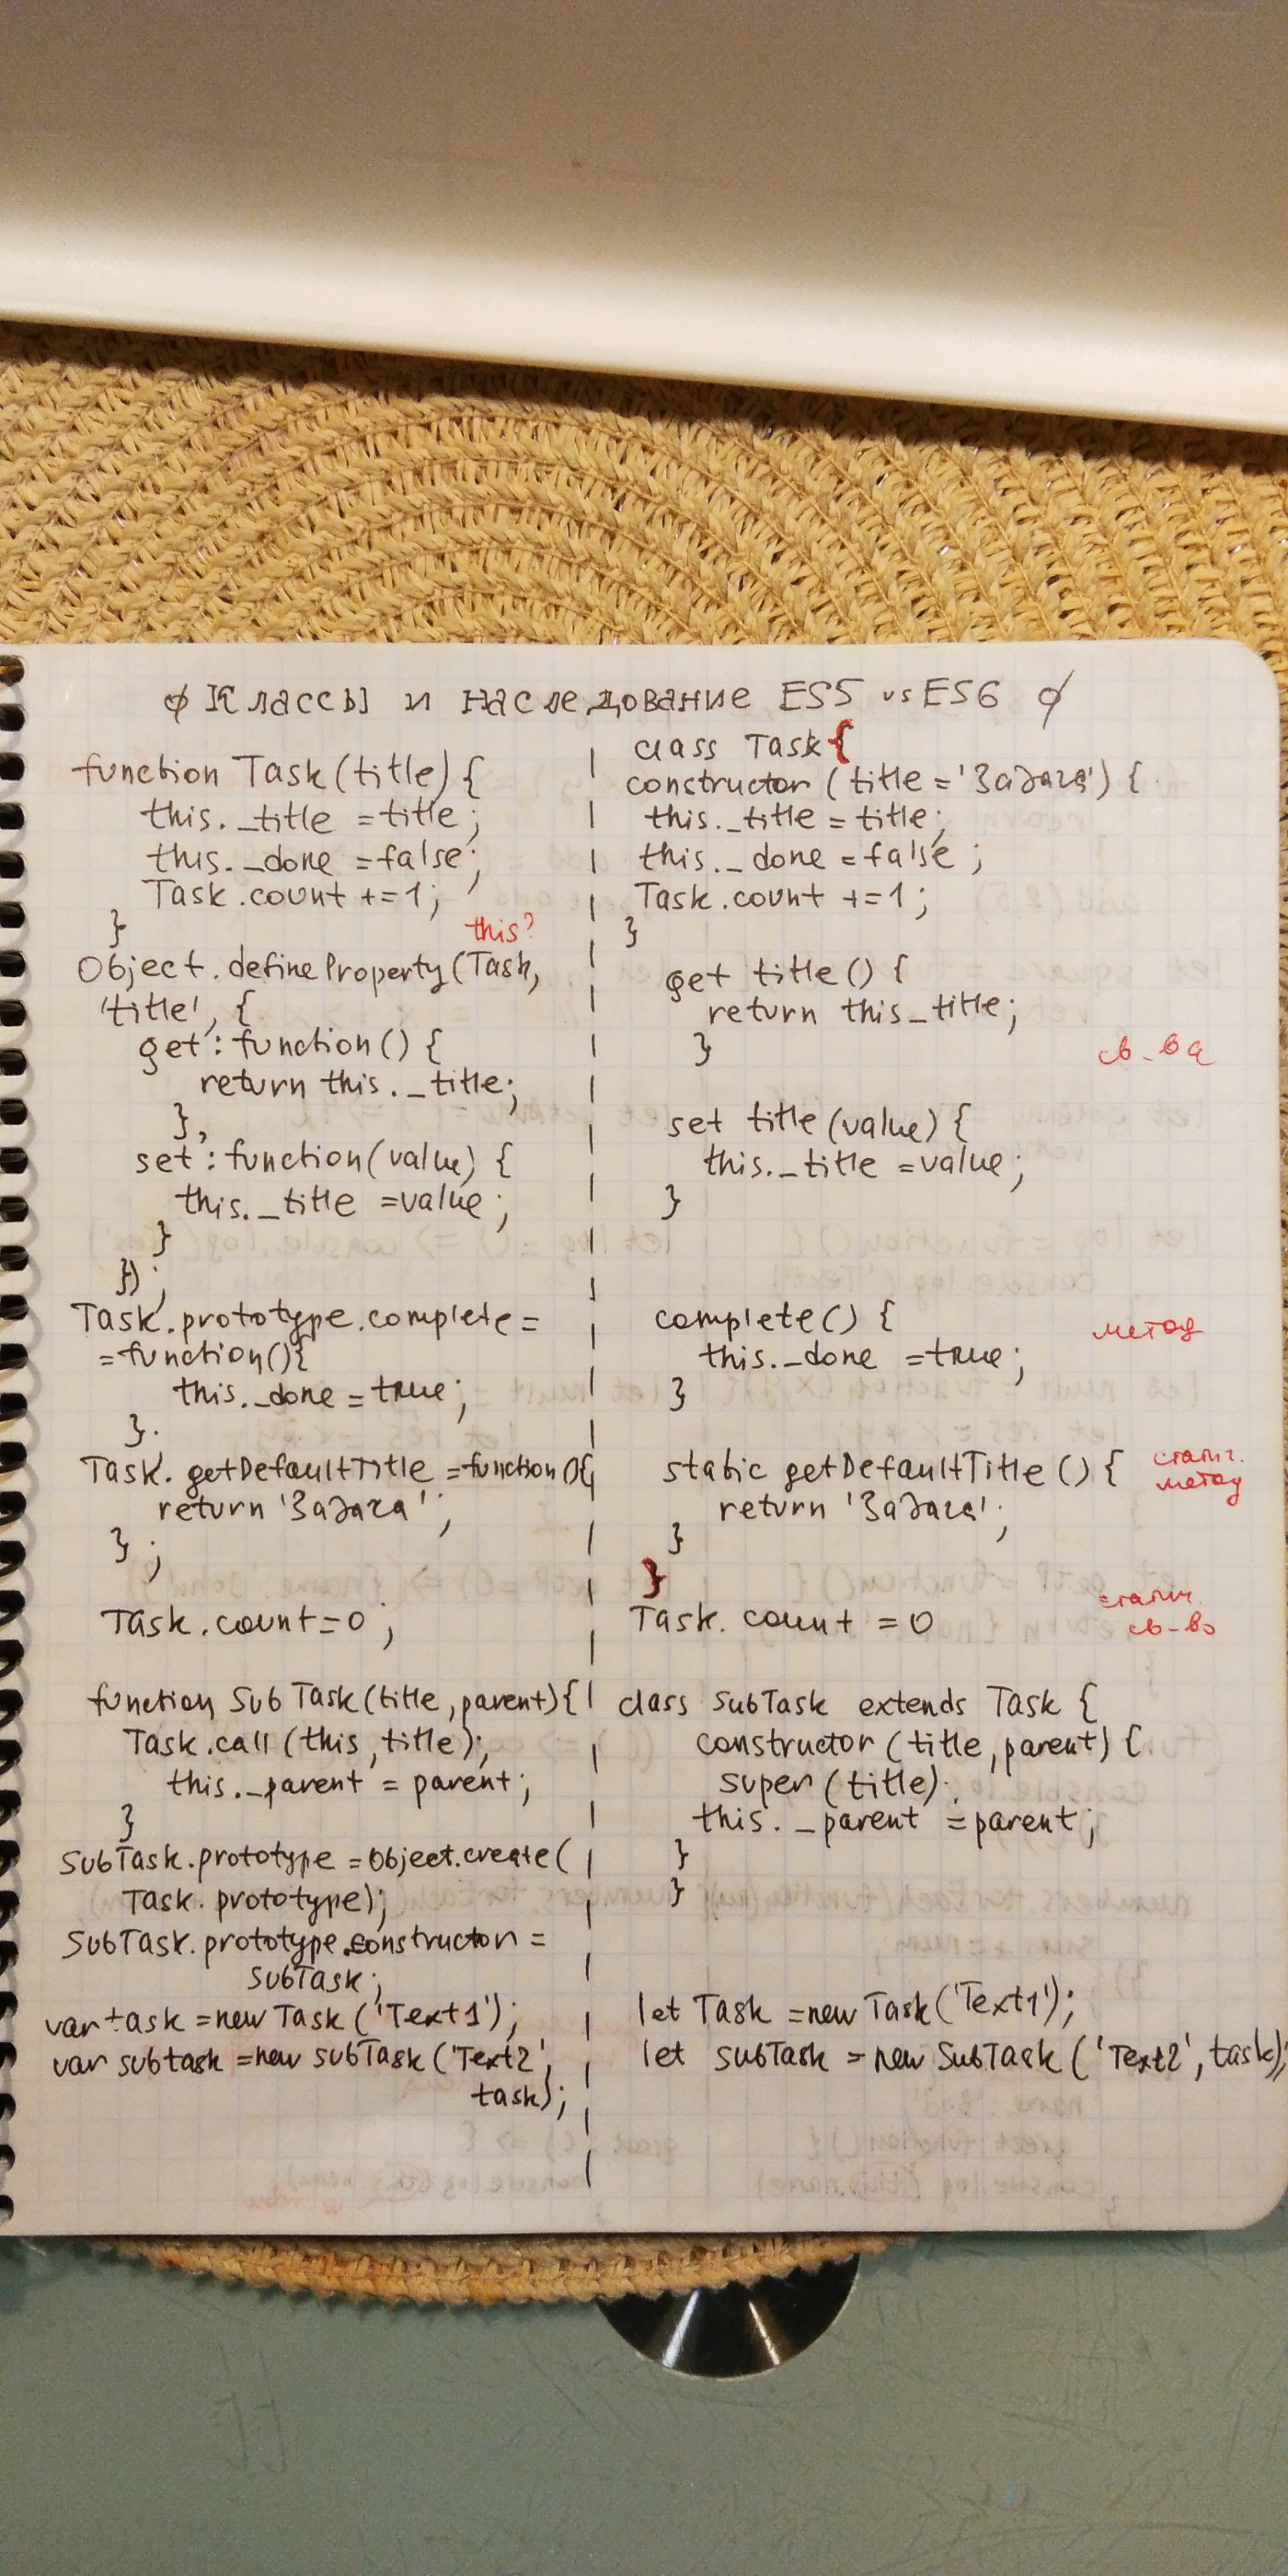 Классы и наследование ES5 vs ES6
function Task(title) {
this._title = title;
this._done = false;
Task.count += 1;
}
this?
Object.defineProperty(Task,
'title', {
get: function() {
return this._title;
},
set: function(value) {
this._title = value;
}
});
Task.prototype.complete =
= function(){
this._done = true;
}.
Task.getDefaultTitle = function(){
return 'Задача';
};
Task.count = 0;
function SubTask(title, parent){
Task.call(this, title);
this._parent = parent;
}
SubTask.prototype = Object.create(
Task.prototype);
SubTask.prototype.constructor =
SubTask;
var task = new Task('Text1');
var subtask = new SubTask('Text2',
task);
class Task {
constructor(title = 'Задача') {
this._title = title;
this._done = false;
Task.count += 1;
}
get title() {
return this_title;
}
св-ва
set title(value) {
this._title = value;
}
complete() {
метод
this._done = true;
}
static getDefaultTitle() {
статич.
метод
return 'Задача';
}
}
Task.count = 0
статич.
св-во
class SubTask extends Task {
constructor(title, parent) {
super(title).
this._parent = parent;
}
}
let Task = new Task('Text1');
let subTask = new SubTask('Text2', task);